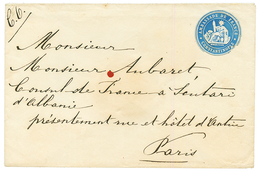 C.C.
AMBASSADE DE FRANCE
CONSTANTINOPLE
Monsieur
Monsieur Aubaret
Consul de France a Scutari
d'Albanie
présentement rue et hôtel d'Antin
Paris